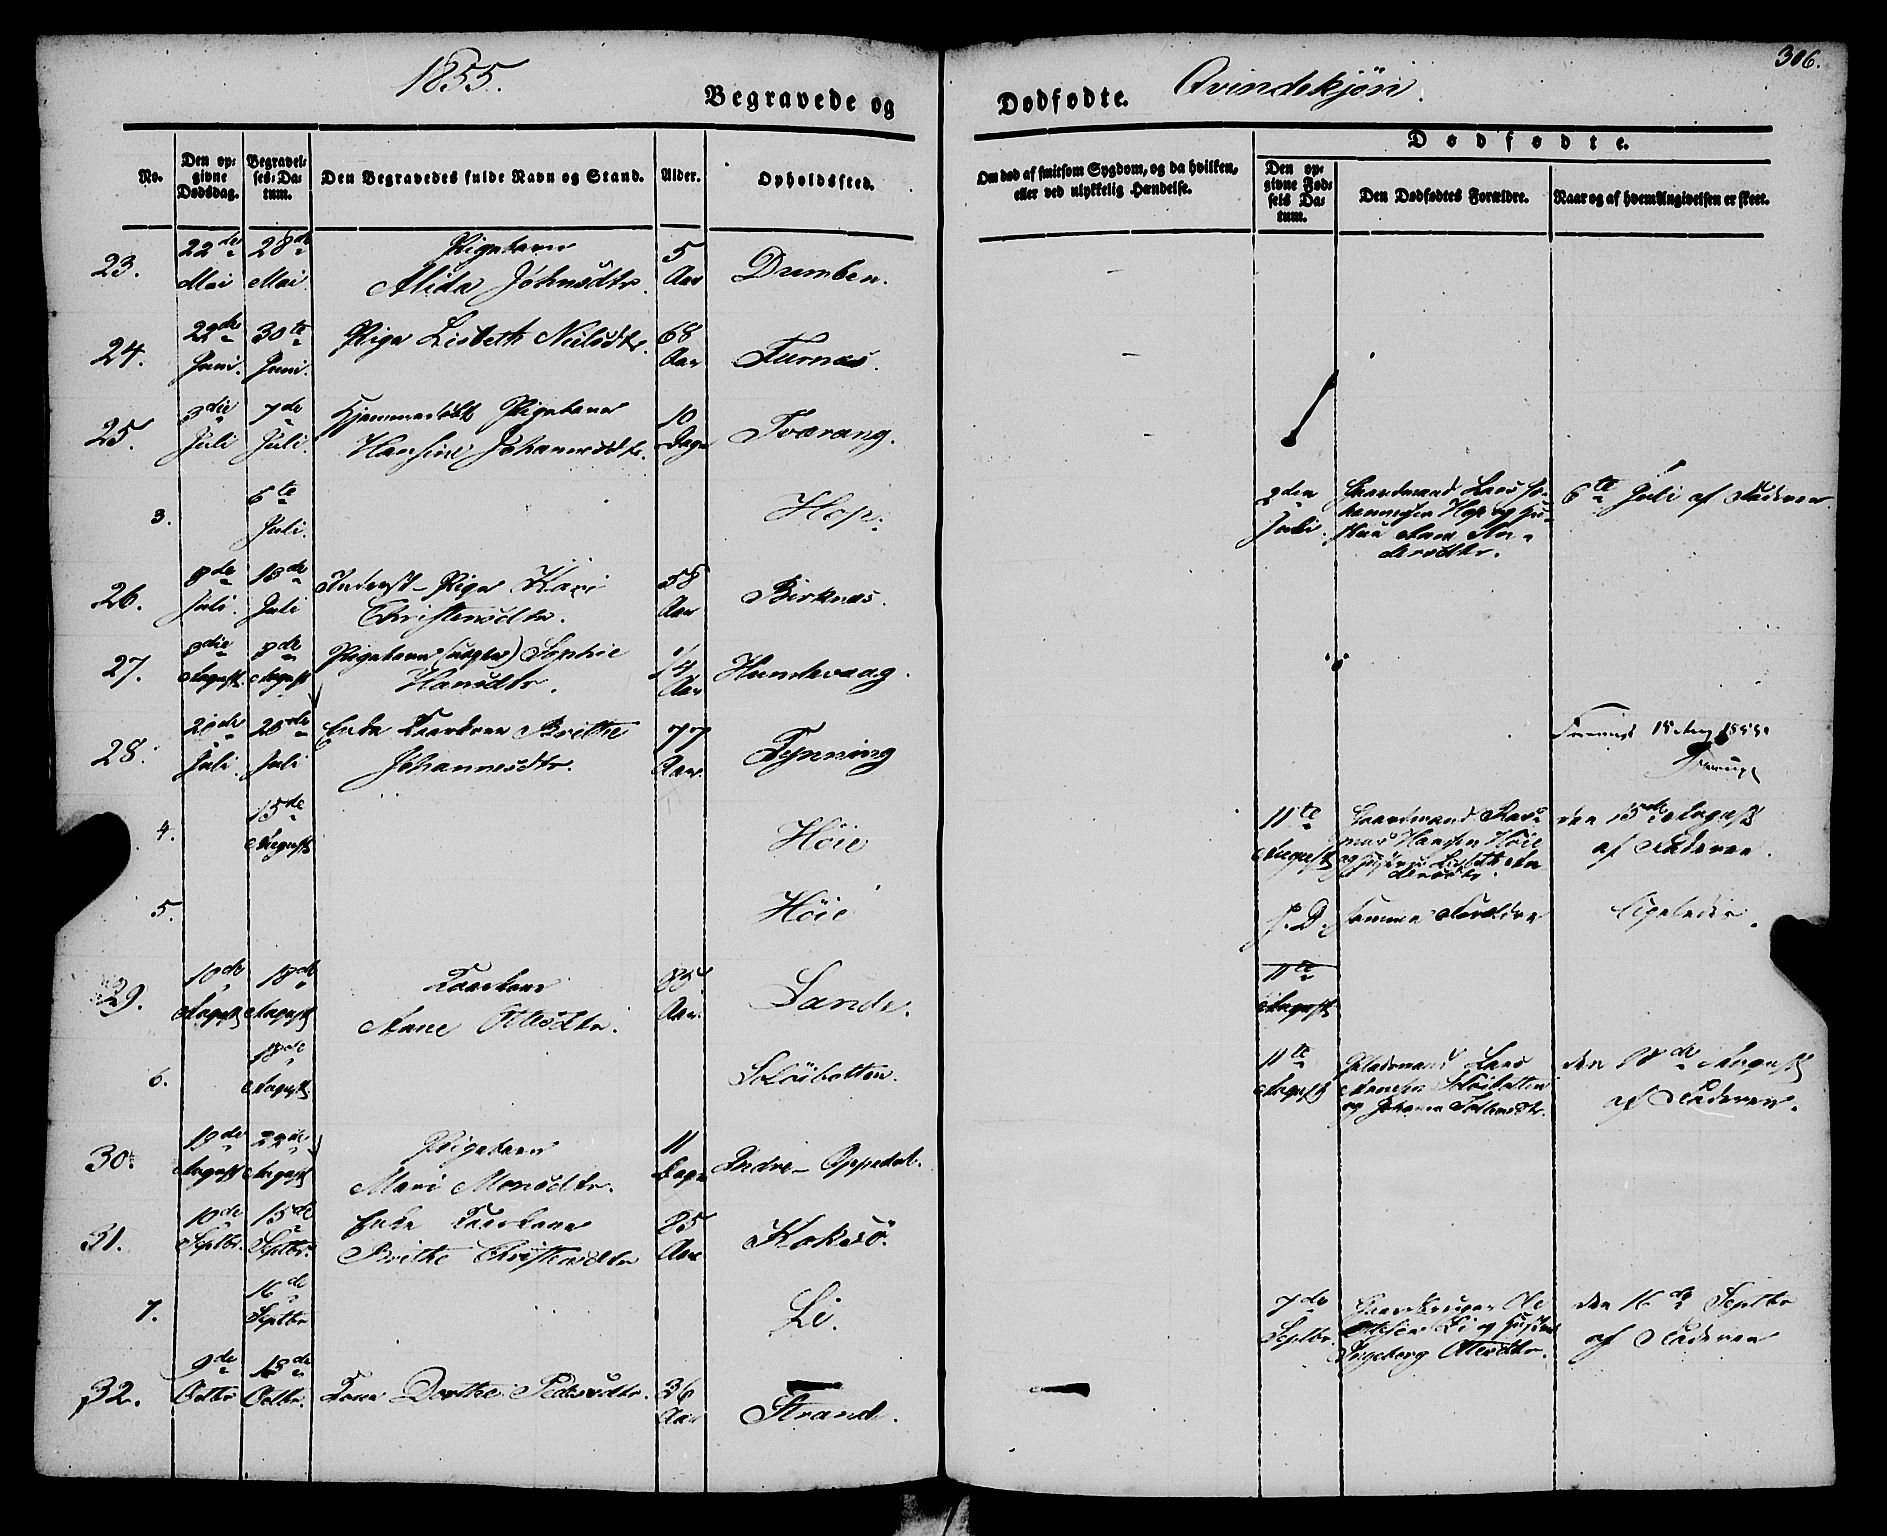 306.
1855.
Begravede og
Dødfødte. Qvindekjön.
No.
Den op-
givne
Dødsdag.
Begravel-
ses-Da-
tum.
Den Begravedes fulde Navn og Stand.
Alder.
Opholdssted.
Om død af smitsom Sygdom, og da hvilken,
eller ved ulykkelig Hændelse.
Dødfødte.
Den op-
givne Fød-
sels Da-
tum.
Den Dødfødtes Forældre.
Naar og af hvem Angivelsen er skeet.
23. 22de Mai 28de Mai Pigebarn
Alida Johnsdtr. 5 Aar Dumben.
24. 22de Juni. 30te Juni. Pige Lisbeth Nielsdtr. 68 Aar Furnæs.
25. 3die Juli 7de Juli. Hjemmedöbt Pigebarn
Hansine Johannesdtr. 10 Dage Tværang.
3. 6te Juli. Hop. 2den Juli. Gaardmand Lars Jo-
hannesen Hop og Hu-
stru Anne An-
dersdtr. 6te Juli af Faderen.
26. 8de Juli. 18de Juli Inderst-Pige Kari
Christensdtr. 58 Aar Birknæs.
27. August. August Pigebarn (uægte) Sophie
Hansdtr. 1/4 Aar Hundevaag.
28. Juli. Juli Enke Kaarkone Brithe
Johannesdtr. 77 Aar. Tynning
15 Aug 1855
4. 15de August Höie 11te August Gaardmand Ras-
mus Hansen Höie
og Hustru Lisbeth An-
dersdtr. den 15de August
af Faderen.
5. Höie s. D. samme Forældre ligeledes.
11te
August
29. 10de August 18de August Kaarkone
Anne Ottesdtr. 85 Aar. Sande.
6. 18de August Solöibotten. 11te August Pladsmand Lars
Hansen Solöibotten
og Johanne den 18de August
af Faderen.
30. 19de August August Pigebarn
Mari Monsdtr. 11 Dage Indre-Oppedal.
31. 10de Septbr. 15de Septbr. Enke Kaarkone
Brithe Christensdtr 85 Aar Koksö.
7. 16de Septbr Li. 7de Septbr. Gaardbruger Ole
Li og Hustru
Ingeborg Ottesdtr. den 16de Septbr
af Faderen
32. 9de Octbr 18de Octbr. Kone Dorthe Pedersdtr. 36 Aar Strand.